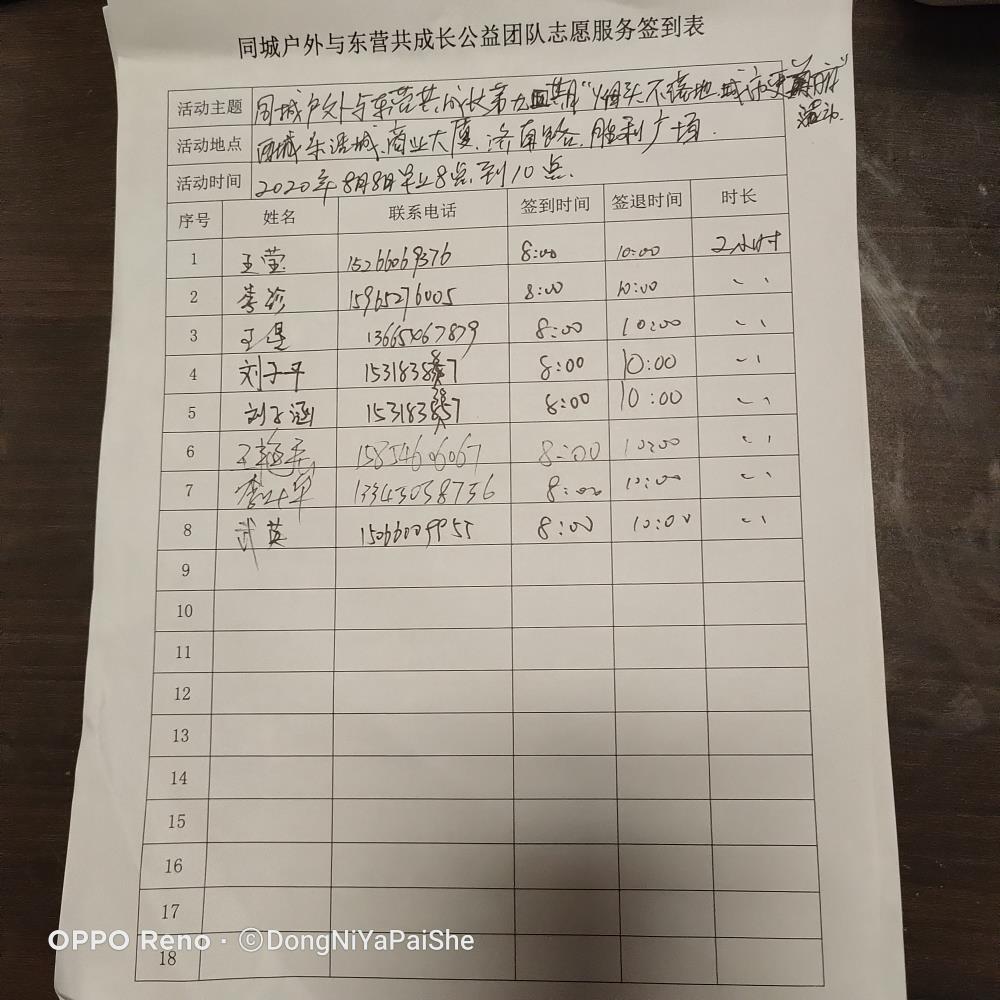 同城户外与东营共成长公益团队志愿服务签到表
活动主题 同城户外与东营共成长第九四期"烟头不落地 城市更
活动
活动地点 西城东 城、商业大厦、济南路、胜利广场.
活动时间 2020年8月8日早上8点到10点.
序号 姓名 联系电话 签到时间 签退时间 时长
1 王莹 15266069376 8:00 10:00 2小时
2 李珍 15965276005 8:00 10:00 〃
3 王 13665067879 8:00 10:00 〃
4 刘子平 8:00 10:00 〃
5 刘子涵 8:00 10:00 〃
6 王 15854606067 8:00 10:00 〃
7 李 13345058736 8:00 10:00 〃
8 武英 15066009955 8:00 10:00 〃
9
10
11
12
13
14
15
16
17
18
OPPO Reno · ©DongNiYaPaiShe